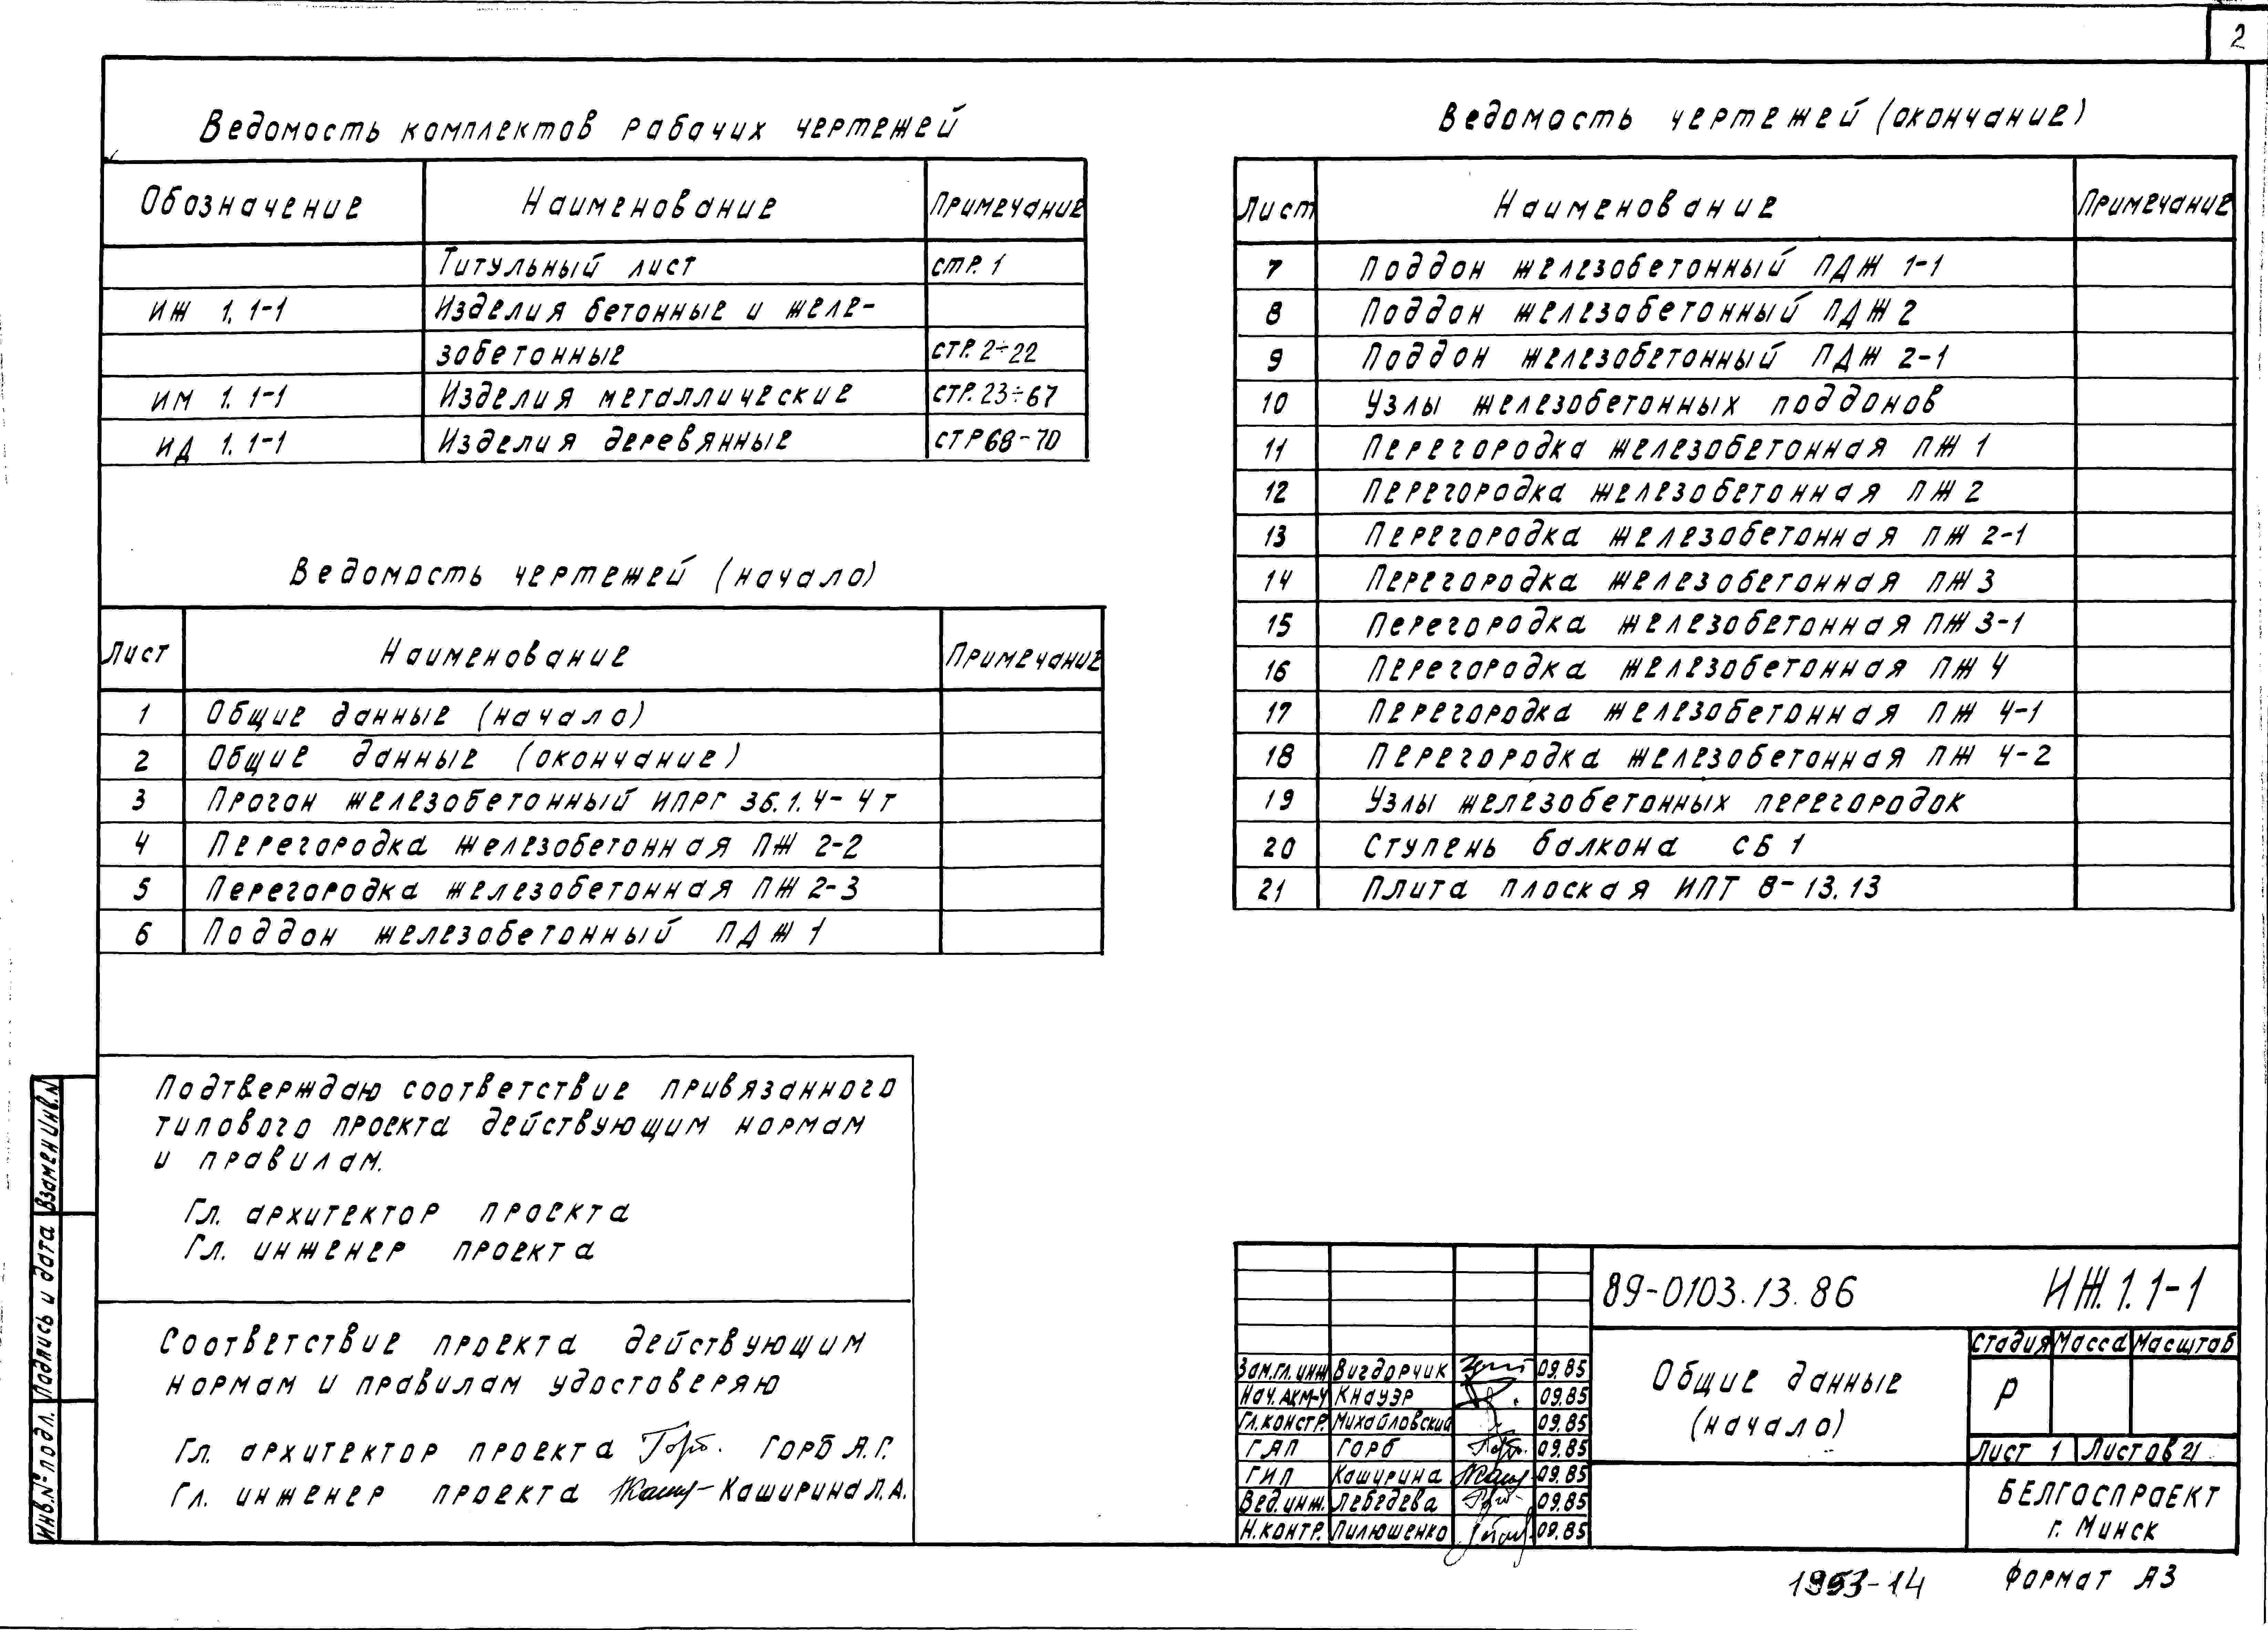 2
Ведомость комплектов рабочих чертежей
Обозначение Наименование Примечание
Титульный лист стр. 1
ИЖ 1.1-1 Изделия бетонные и желе-
зобетонные стр. 2÷22
ИМ 1.1-1 Изделия металлические стр. 23÷67
ИД 1.1-1 Изделия деревянные стр 68-70
Ведомость чертежей (начало)
Лист Наименование Примечание
1 Общие данные (начало)
2 Общие данные (окончание)
3 Прогон железобетонный ИПРГ 36.1.4-4т
4 Перегородка железобетонная ПЖ 2-2
5 Перегородка железобетонная ПЖ 2-3
6 Поддон железобетонный ПДЖ 1
Ведомость чертежей (окончание)
Лист Наименование Примечание
7 Поддон железобетонный ПДЖ 1-1
8 Поддон железобетонный ПДЖ 2
9 Поддон железобетонный ПДЖ 2-1
10 Узлы железобетонных поддонов
11 Перегородка железобетонная ПЖ 1
12 Перегородка железобетонная ПЖ 2
13 Перегородка железобетонная ПЖ 2-1
14 Перегородка железобетонная ПЖ 3
15 Перегородка железобетонная ПЖ 3-1
16 Перегородка железобетонная ПЖ 4
17 Перегородка железобетонная ПЖ 4-1
18 Перегородка железобетонная ПЖ 4-2
19 Узлы железобетонных перегородок
20 Ступень балкона СБ 1
21 Плита плоская ИПТ 8-13.13
Подтверждаю соответствие привязанного
типового проекта действующим нормам
и правилам.
Гл. архитектор проекта
Гл. инженер проекта
Соответствие проекта действующим
нормам и правилам удостоверяю
Гл. архитектор проекта Горб А.Г.
Гл. инженер проекта Каширина Л.А.
Взамен инв.N
Подпись и дата
Инв.№ подл.
89-0103.13.86 ИЖ.1.1-1
Зам.гл.инж Вигдорчик 09.85
Нач.АКМ-4 Кнауэр 09.85
Гл.констр. Михайловский 09.85
ГАП Горб 09.85
ГИП Каширина 09.85
Вед.инж. Лебедева 09.85
Н.контр. Пилюшенко 09.85
Общие данные
(начало)
Стадия Масса Масштаб
Р
Лист 1 Листов 21
БЕЛГОСПРОЕКТ
г. Минск
1953-14 Формат А3